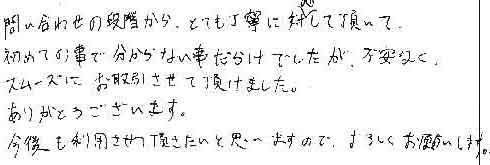 問い合わせの段階から、とても丁寧に対応して頂いて、
初めての事で分からない事だらけでしたが、不安なく、
スムーズにお取引させて頂けました。
ありがとうございます。
今後も利用させて頂きたいと思いますので、よろしくお願いします。